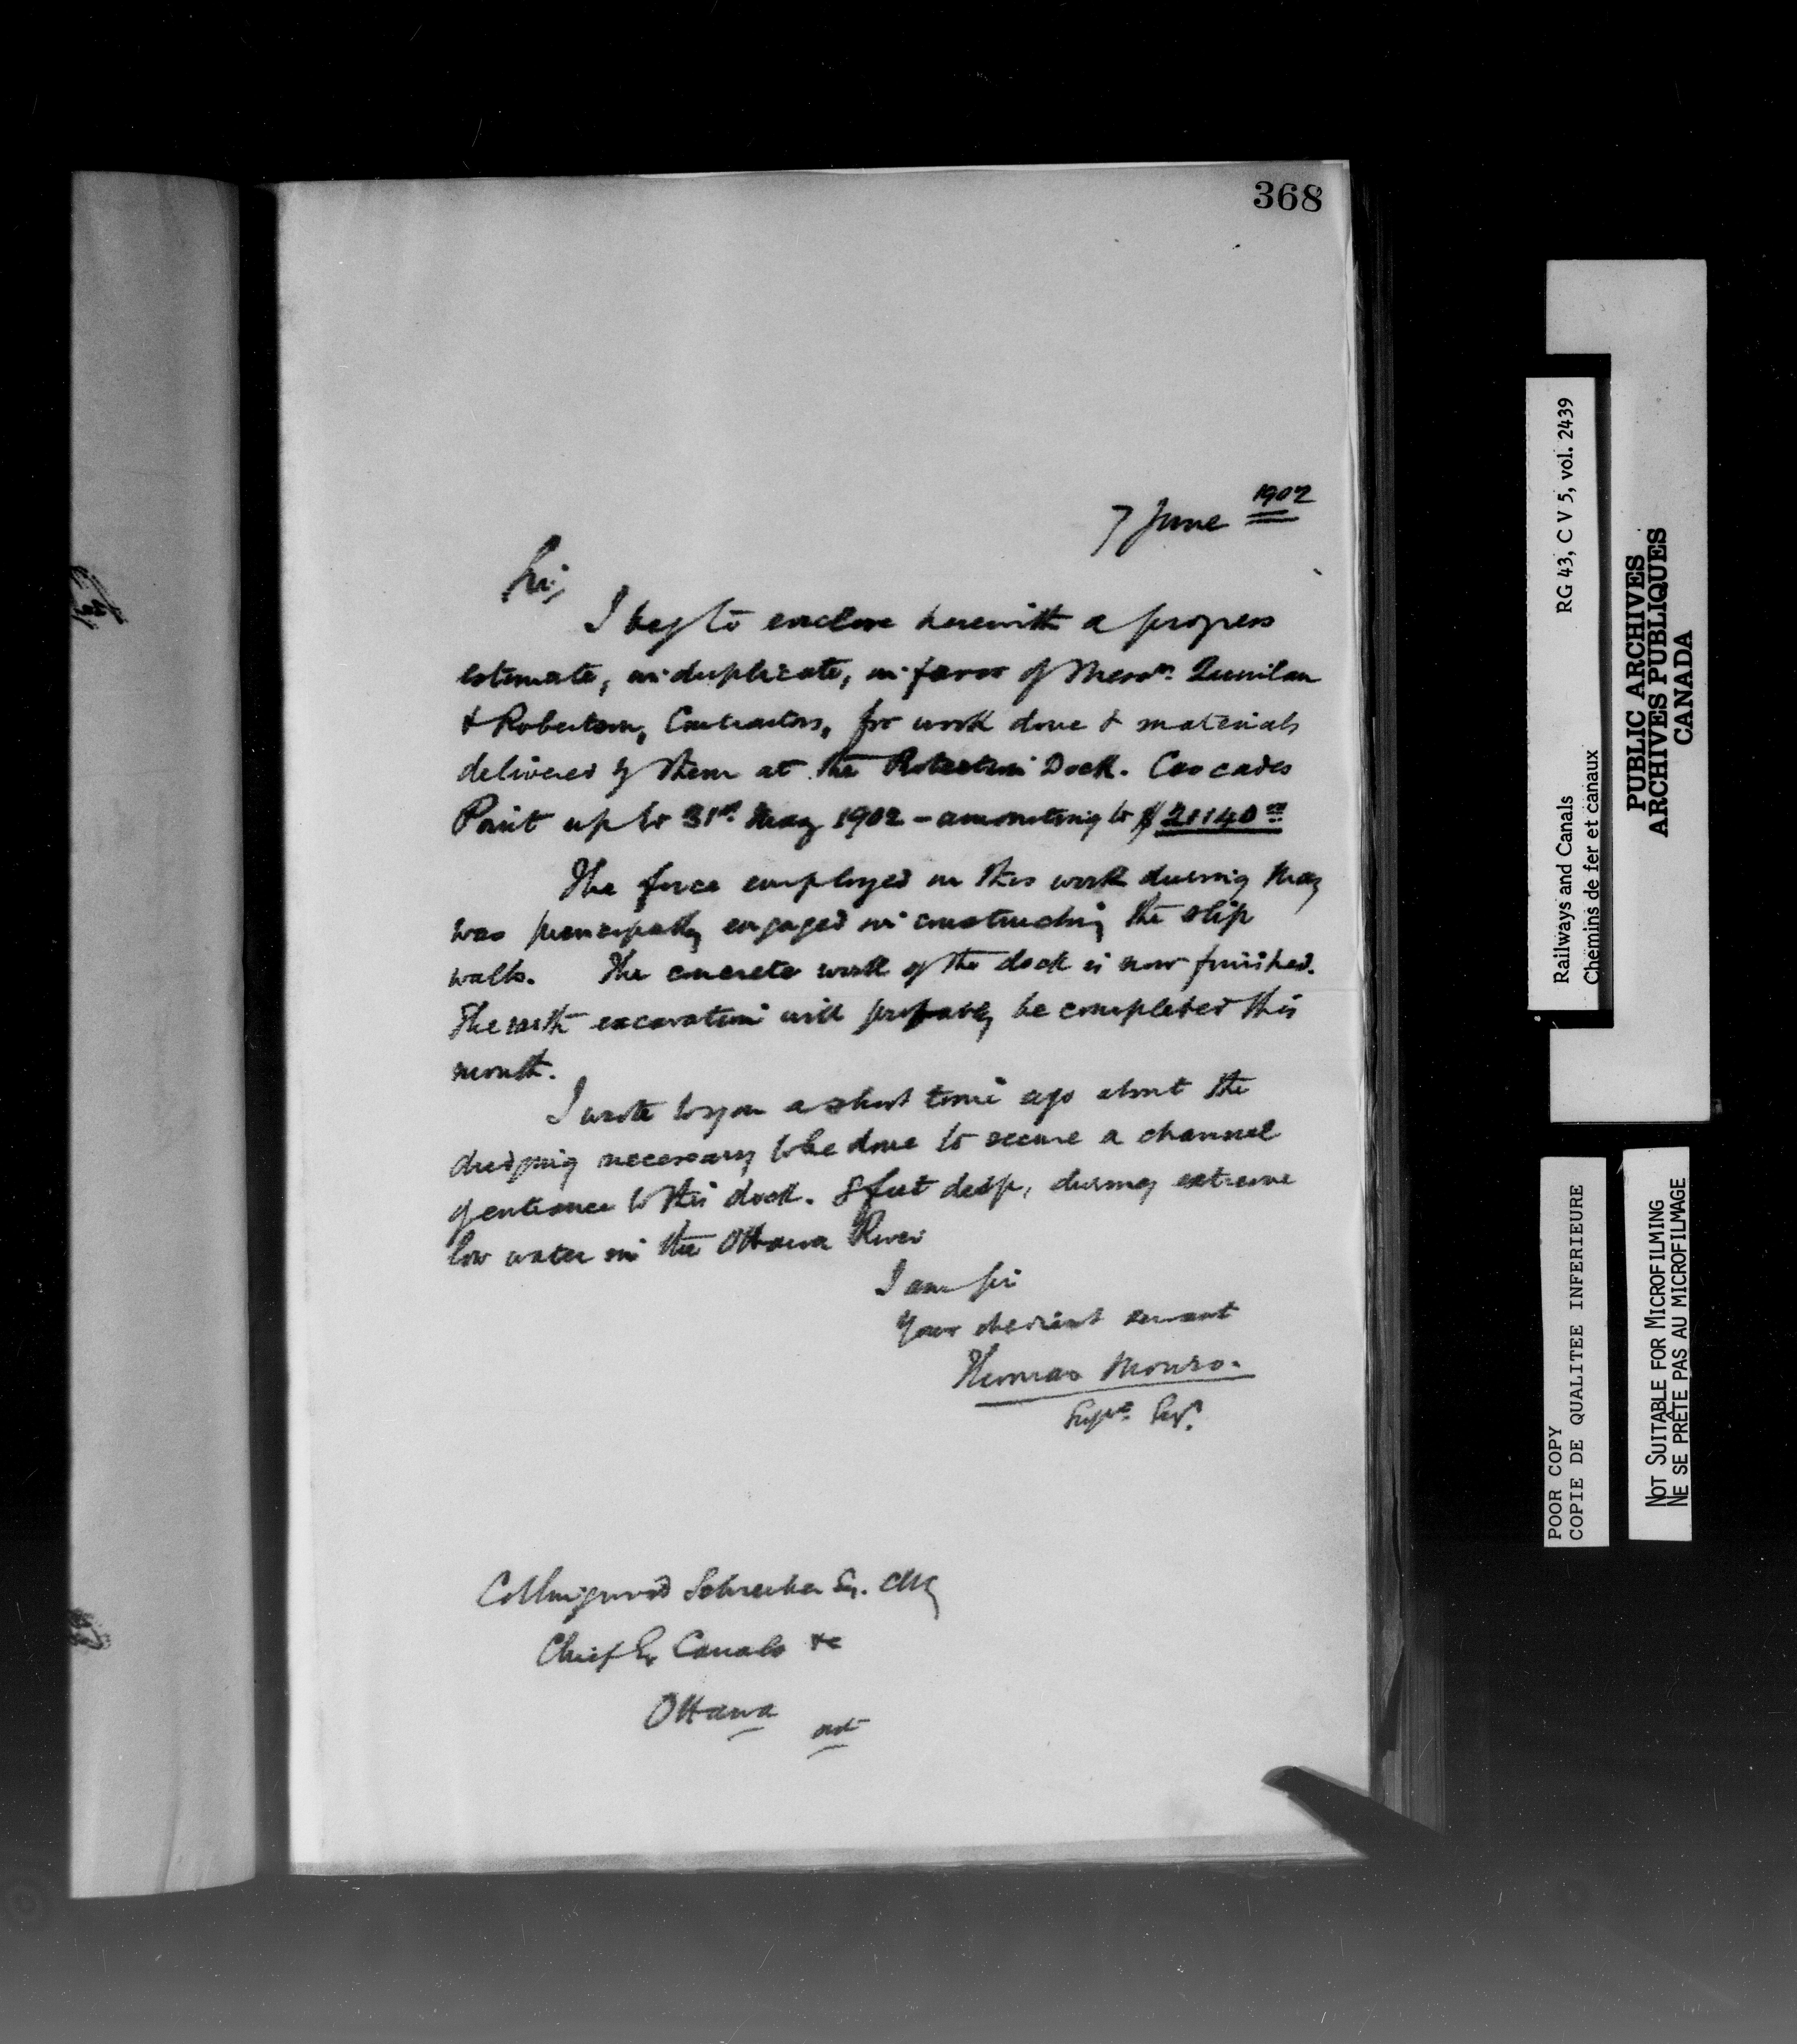 368
7 June 1902
Sir,
I beg to enclose herewith a progress
estimate, in duplicate, in favor of Messrs. Quinlan
& Robertson, Contractors, for work done & materials
delivered by them at the Protection Dock. Cascades
Point up to 31st May 1902 - amounting to $ 21140 00
The force employed on this work during May
was principally engaged in constructing the slip
walls. The concrete work of the dock is now finished.
The earth excavation will probably be completed this
month.
I wrote to you a short time ago about the
dredging necessary to be done to secure a channel
of entrance to this dock. 8 feet deep, during extreme
low water in the Ottawa River
I am Sir
Your obedient servant
Thomas Monro.
Supg. Egr.
Collingwood Schreiber Esq. CMG
Chief Er Canals &c
Ottawa
Railways and Canals RG 43, C V 5, vol. 2439
Chemins de fer et canaux
PUBLIC ARCHIVES
ARCHIVES PUBLIQUES
CANADA
POOR COPY
COPIE DE QUALITEE INFERIEURE
NOT SUITABLE FOR MICROFILMING
NE SE PRÊTE PAS AU MICROFILMAGE